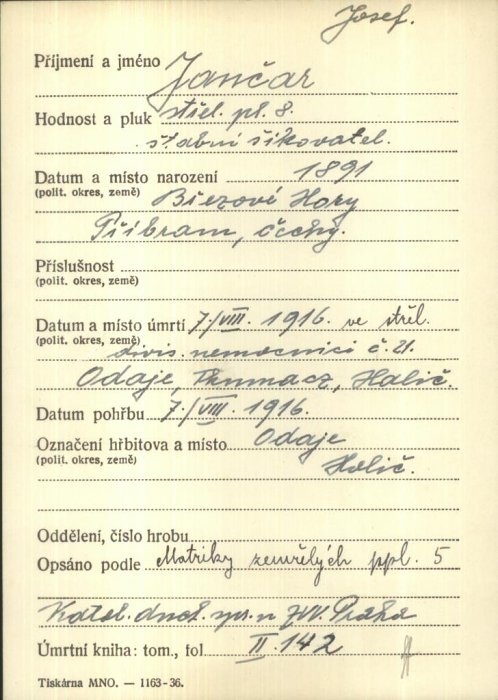 Josef.
Příjmení a jméno Jančar
Hodnost a pluk střel. pl. 8.
štabní šikovatel.
Datum a místo narození 1891
(polit. okres, země) Březové Hory
Příbram, Čechy.
Příslušnost
(polit. okres, země)
Datum a místo úmrtí 7./VIII. 1916. ve střel.
(polit. okres, země) divis. nemocnici č. 21.
Odaje, Tlumacz, Halič.
Datum pohřbu 7./VIII. 1916.
Označení hřbitova a místo Odaje
(polit. okres, země) Halič.
Oddělení, číslo hrobu
Opsáno podle Matriky zemřelých ppl. 5
Katol. duch. spr. n ZVV. Praha
Úmrtní kniha: tom., fol II. 142
Tiskárna MNO. — 1163-36.